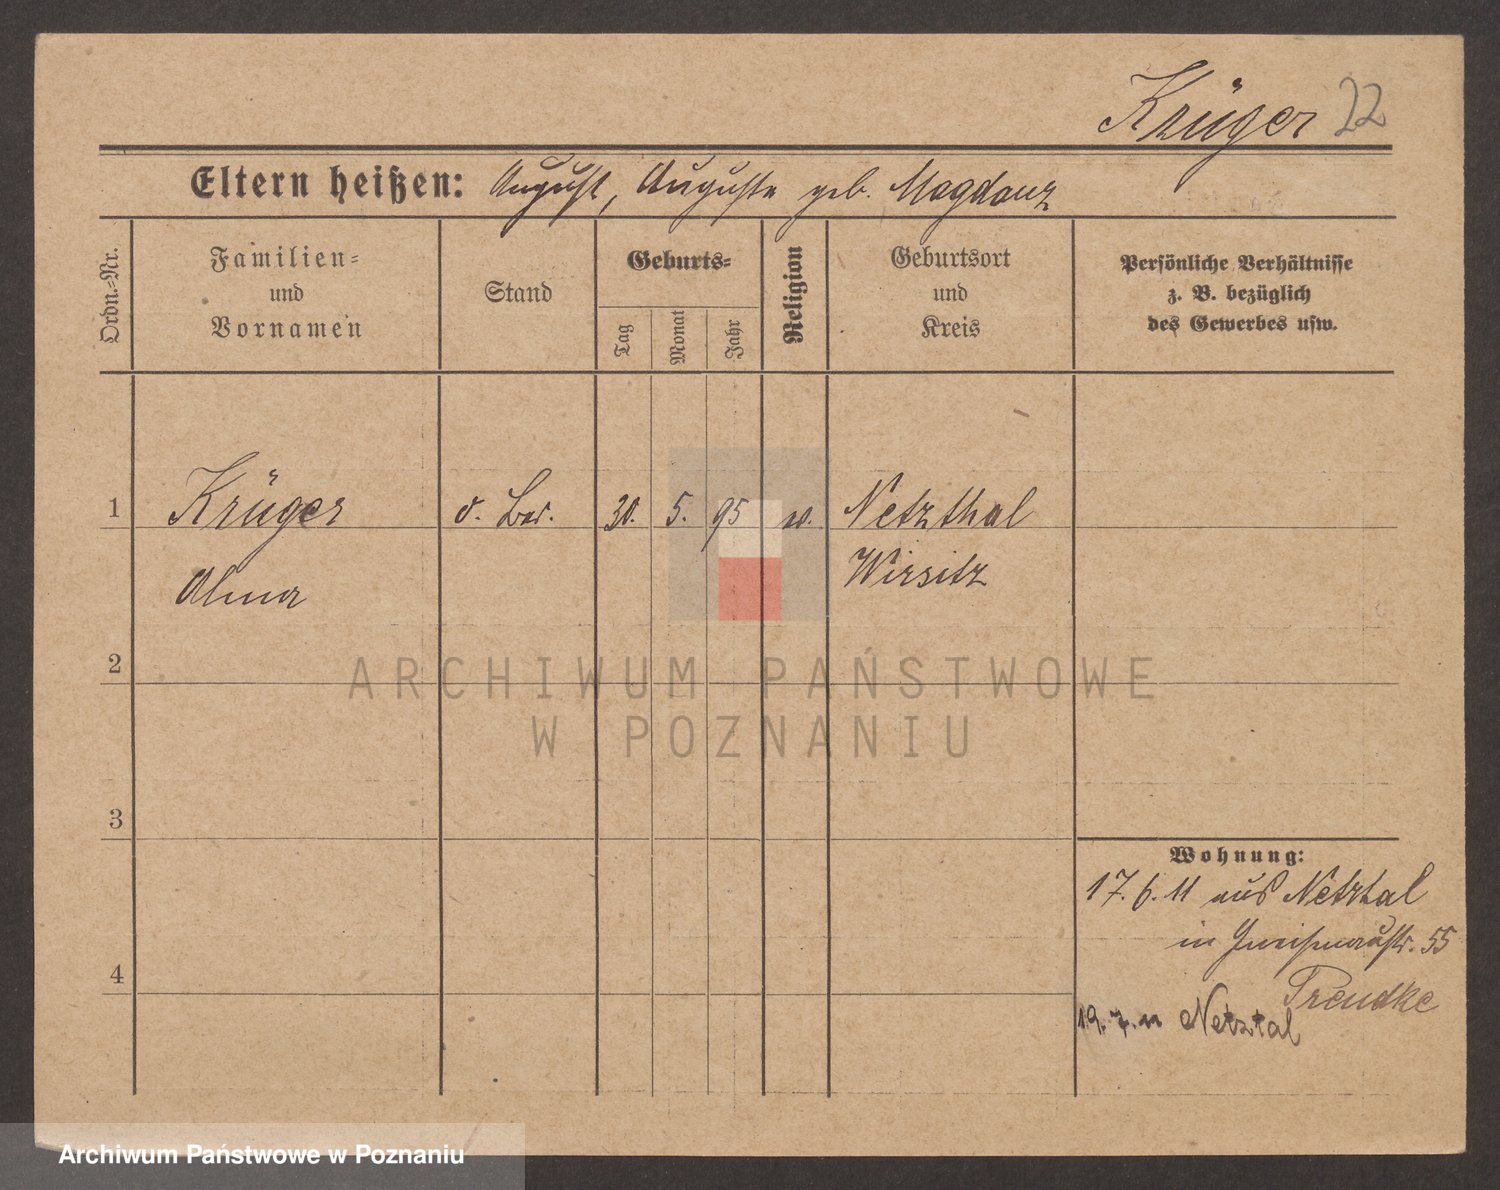 Krüger 22
Eltern heißen: August, Auguste geb. Magdanz
Ordn.=Nr.
Familien=
und
Vornamen
Stand
Geburts=
Tag
Monat
Jahr
Religion
Geburtsort
und
Kreis
Persönliche Verhältnisse
z. B. bezüglich
des Gewerbes usw.
1
Krüger
o. Ber.
30.
5.
95
Netzthal
Alma
Wirsitz
2
ARCHIWUM PAŃSTWOWE
W POZNANIU
3
Wohnung:
17.6.11 aus Netzthal
in Gneisenaustr. 55
4
Trendke
19.7.11 Netztal
Archiwum Państwowe w Poznaniu